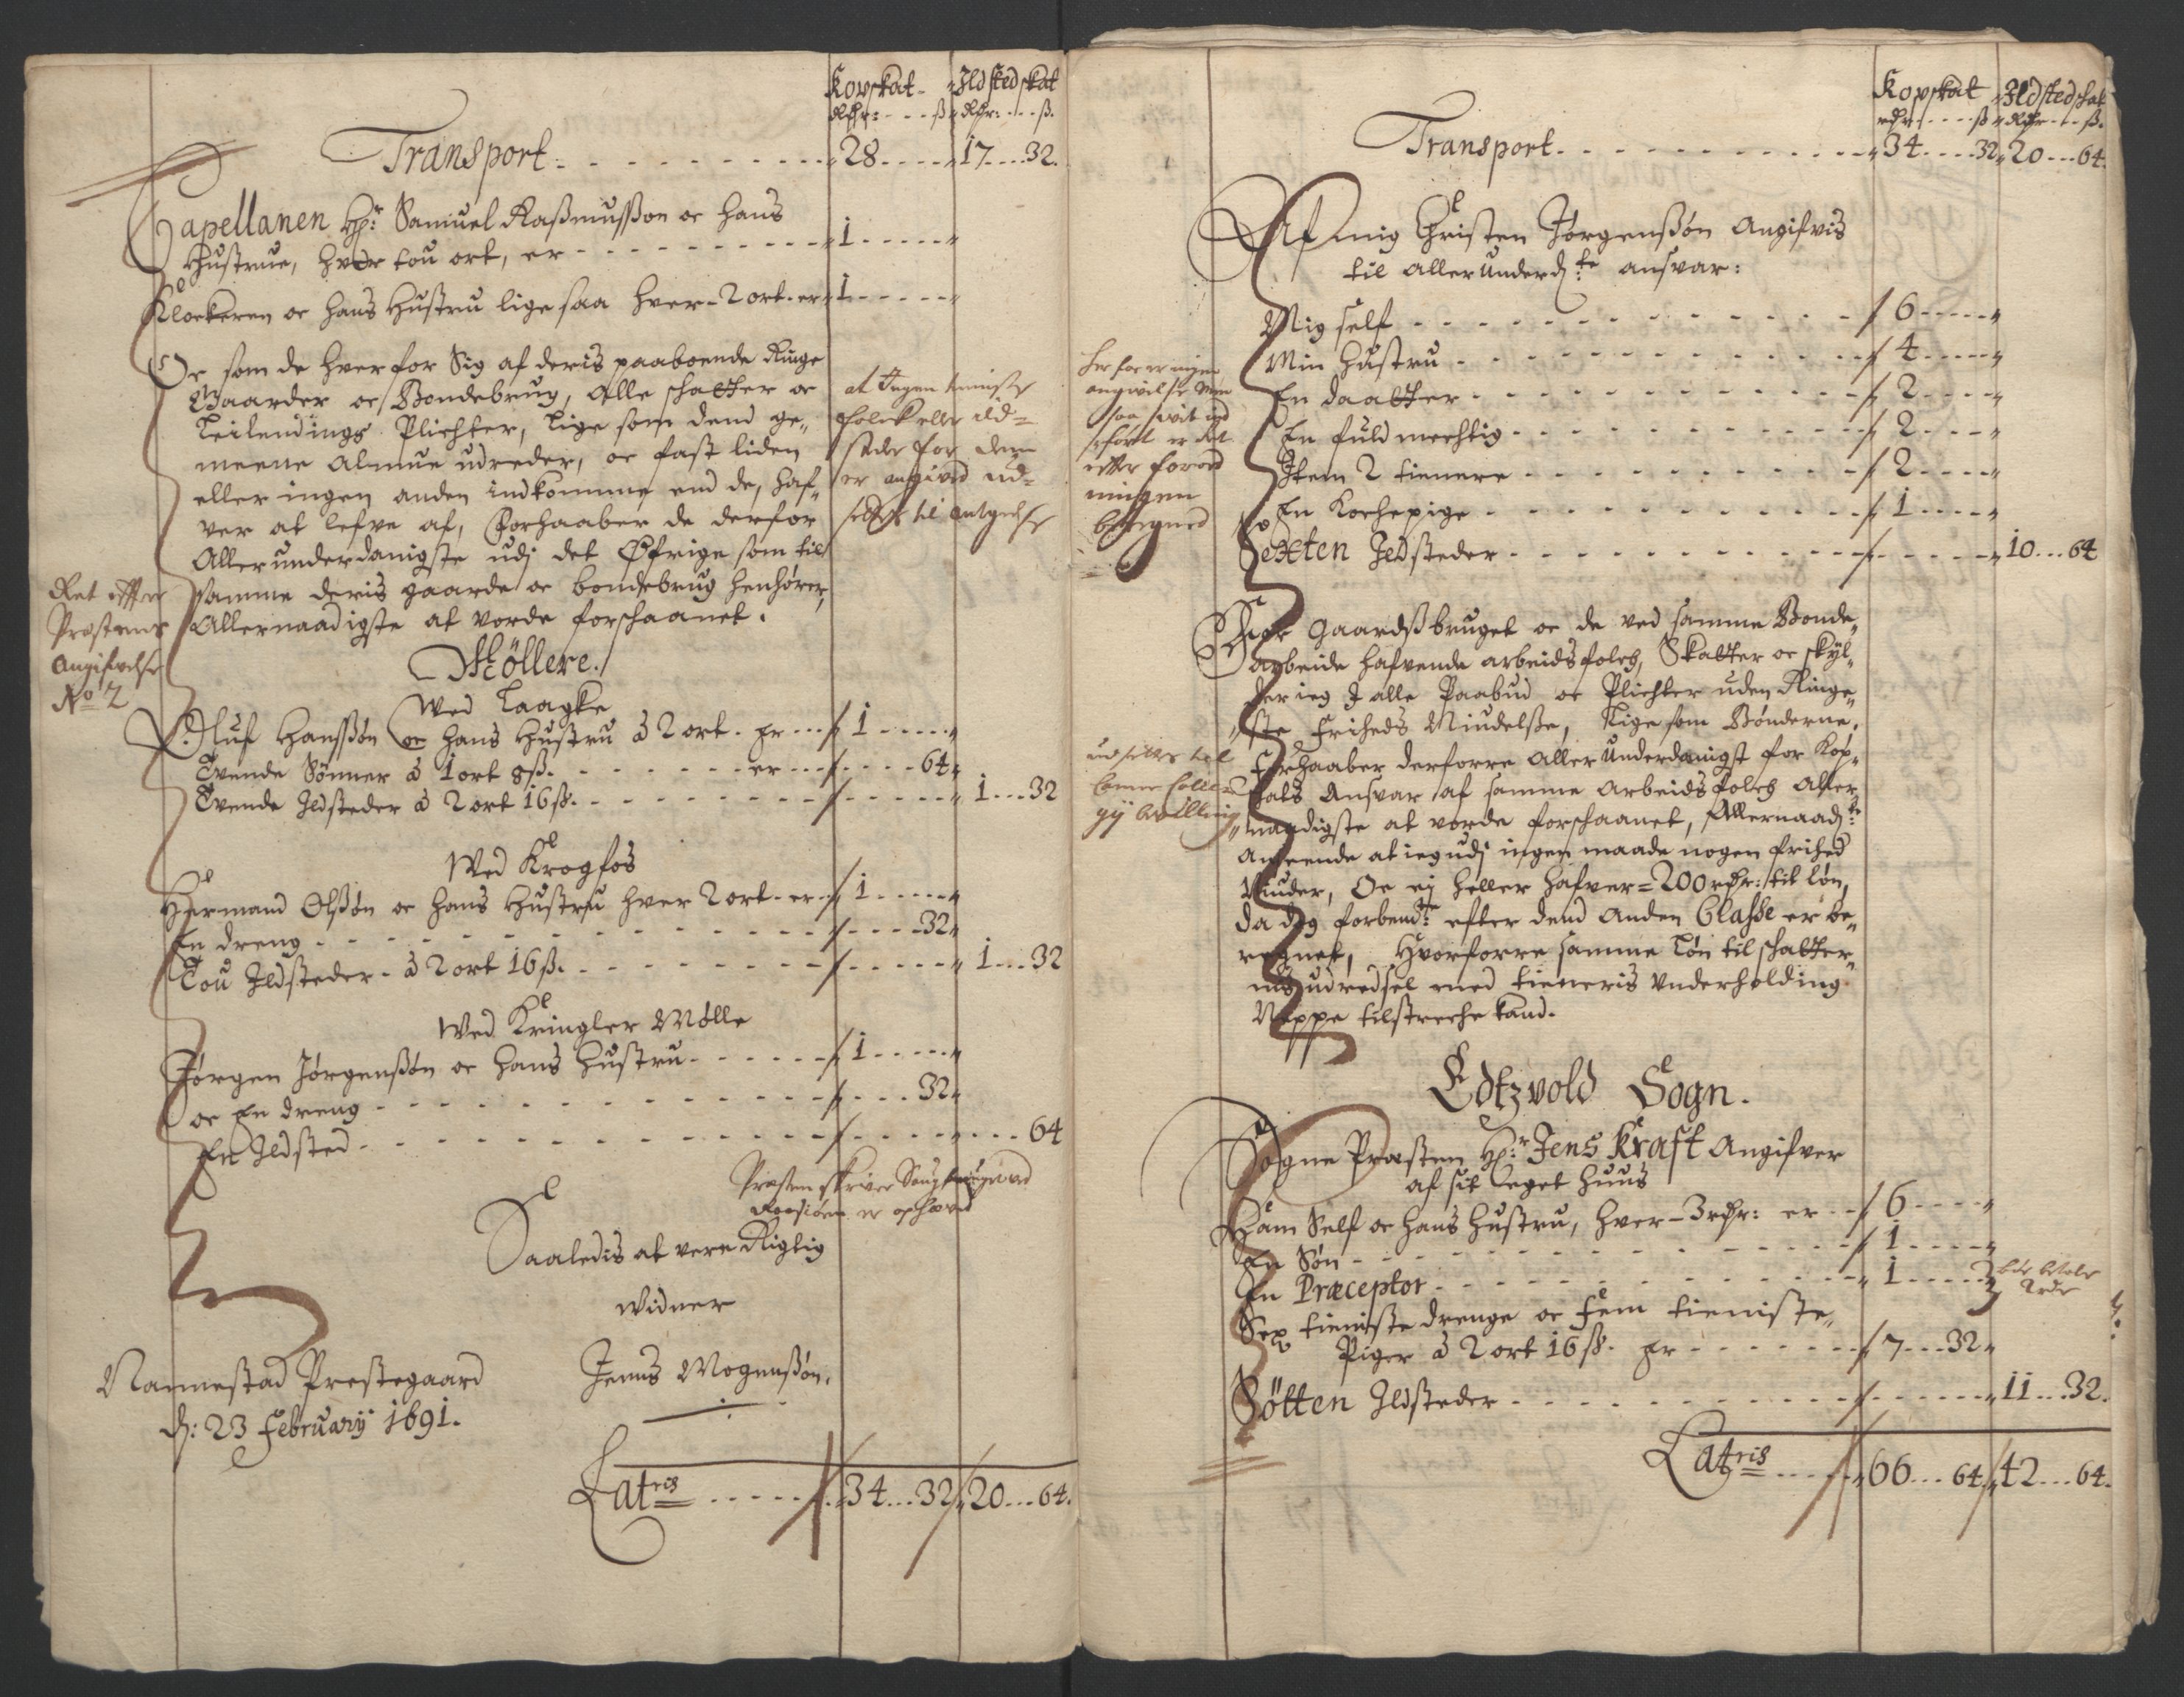 Kopskat Ildstedskat
Rdr: ß Rdr: ß.
Transport 28 17 32.
Capellanen Hr: Samuel Rasmussøn oc hans
Hustrue, hver tou ort, er 1
Klockeren oc hans Hustru lige saa hver 2 ort er 1
Oc som de hver for Sig af deris paaboende Ringe
Gaarder oc Bondebrug, Alle schatter oc
Leilendings Plichter, Lige som dend ge„
meene Almue udreder, oc fast liden
eller ingen anden indkomme end de, haf„
ver at lefve af, Forhaaber de derfor
Allerunderdanigste udj det Øfrige som til
samme deris gaarde oc bondebrug henhører,
Allernaadigste at vorde forschaanet.
at Ingen tienniste
folck eller ild=
steder for dem
er angived ud=
settes til antegnelse
Ret efter
Prestens
Angifvelse
No 2
Möllere.
Wed Laagke
Oluf Hanssøn oc hans Hustru à 2 ort. er 1
Tvende Sønner à 1 ort 8ß. er 64
Tvende Ildsteder à 2 ort 16ß. 1 32
Wed Krogfos
Hermand Olßøn oc hans Hustru hver 2 ort. er 1
En dreng 32
Tou Ildsteder à 2 ort 16ß. 1 32
Wed Kringler Mølle
Jørgen Jørgenßøn oc hans Hustru 1
oc En dreng 32
En Ildsted 64
Presten skriver
er
Saaledis at vere Rigtig
Widner
Nannestad Prestegaard Jenns Mogenßøn.
d: 23 February 1691.
Latris 34 32 20 64.
Kopskat Ildstedskat
rdr ß Rdr ß.
Transport 34 32 20 64.
Af mig Christen Jørgenßøn Angifvis
til Allerunderd:te ansvar:
Mig self 6
Min Hustru 4
En daatter 2
En fuldmechtig 2
Item 2 tienere 2
En Kochepige 1
Sexten Ildsteder 10 64
Her for er ingen
angivelse Men
saa vit ind
ført er Ret
efter forord
ningen
beregned
Hvor Gaardsbruget oc de ved samme Bonde„
arbeide hafvende arbeids folch, Skatter oc skyl„
der ieg I alle Paabud oc Plichter uden Ringe„
ste Friheds Niudelße, Lige som Bønderne,
Forhaaber derforre Aller Underdanigst for Kop„
skats Ansvar af samme Arbeids folch Aller„
naadigste at vorde forschaanet, Allernaad:te
Anseende at ieg udj ingen maade nogen frihed
Niuder, Oc ej heller hafver 200 rdr: til løn,
da dog forbem:te efter dend Anden Classe er be„
regnet, Hvorforre samme Løn til schatter„
nis udredsel med tieneris Underholding
Neppe tilstreche kand.
udsettes til
Edtzvold Sogn.
Sogne Præsten Hr: Jens Kraft Angifver
af sit eget Huus
Ham Self oc hans Hustru, hver 3 rdr: er 6
En Søn 1
En Præceptor 1
bør betale
2 rdr
Sex tieniste drenge oc Fem tieniste„
Piger à 2 ort 16ß. er 7 32
Søtten Ildsteder 11 32.
Latris 66 64 42 64.